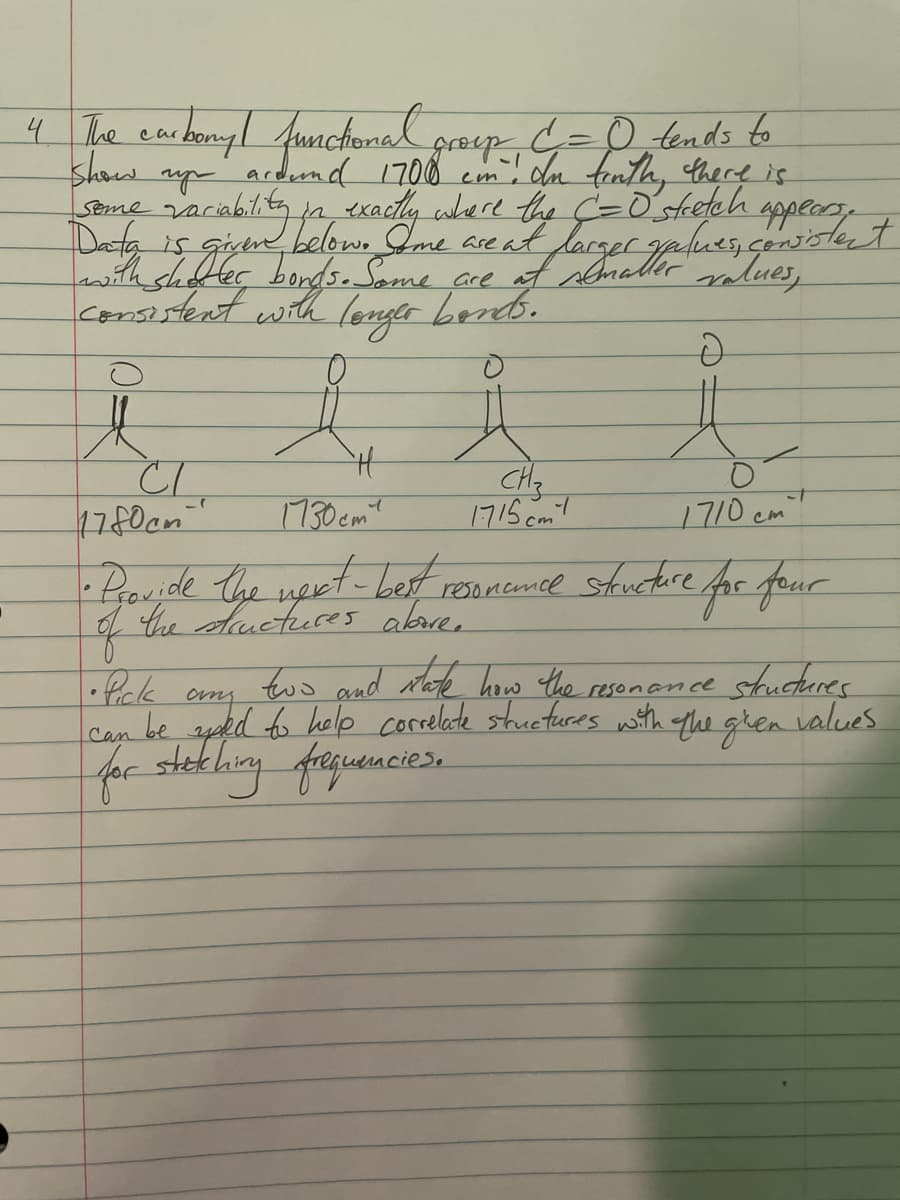 4 The carbonyl functional group C=O tends to
show up around 1700 cm⁻¹. In truth, there is
some variability in exactly where the C=O stretch appears.
Data is given below. Some are at larger values, consistent
with shorter bonds. Some are at smaller values,
consistent with longer bonds.
O O O O
Cl H CH₃ O
1780 cm⁻¹ 1730 cm⁻¹ 1715 cm⁻¹ 1710 cm⁻¹
• Provide the next-best resonance structure for four
of the structures above.
• Pick any two and state how the resonance structures
can be used to help correlate structures with the given values
for stretching frequencies.